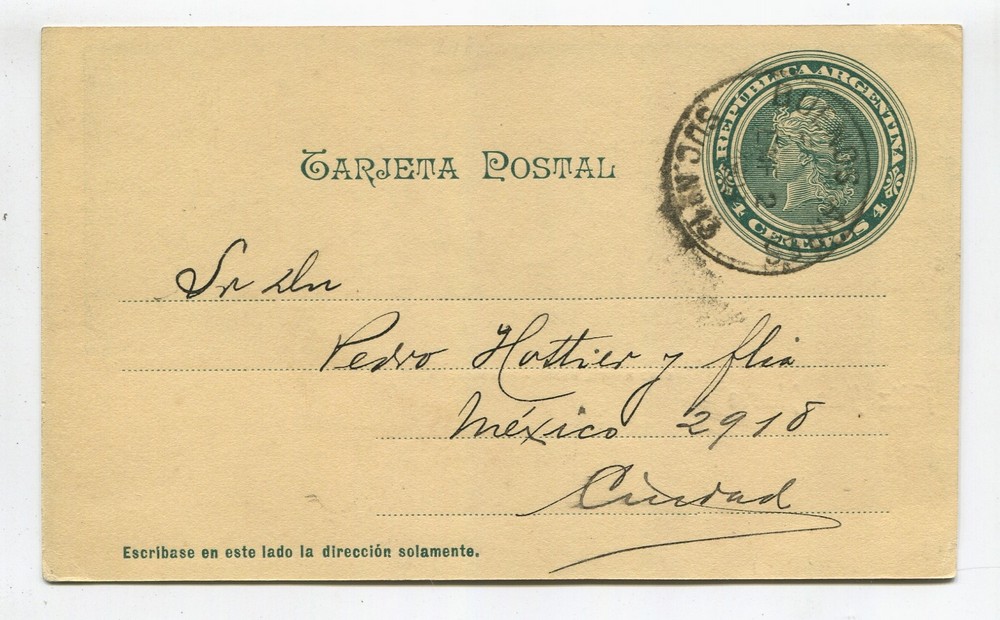 REPUBLICA ARGENTINA
4 CENTVOS 4
TARJETA POSTAL
Sr Dn
Pedro Hottier y flia
México 2918
Ciudad
Escríbase en este lado la dirección solamente.